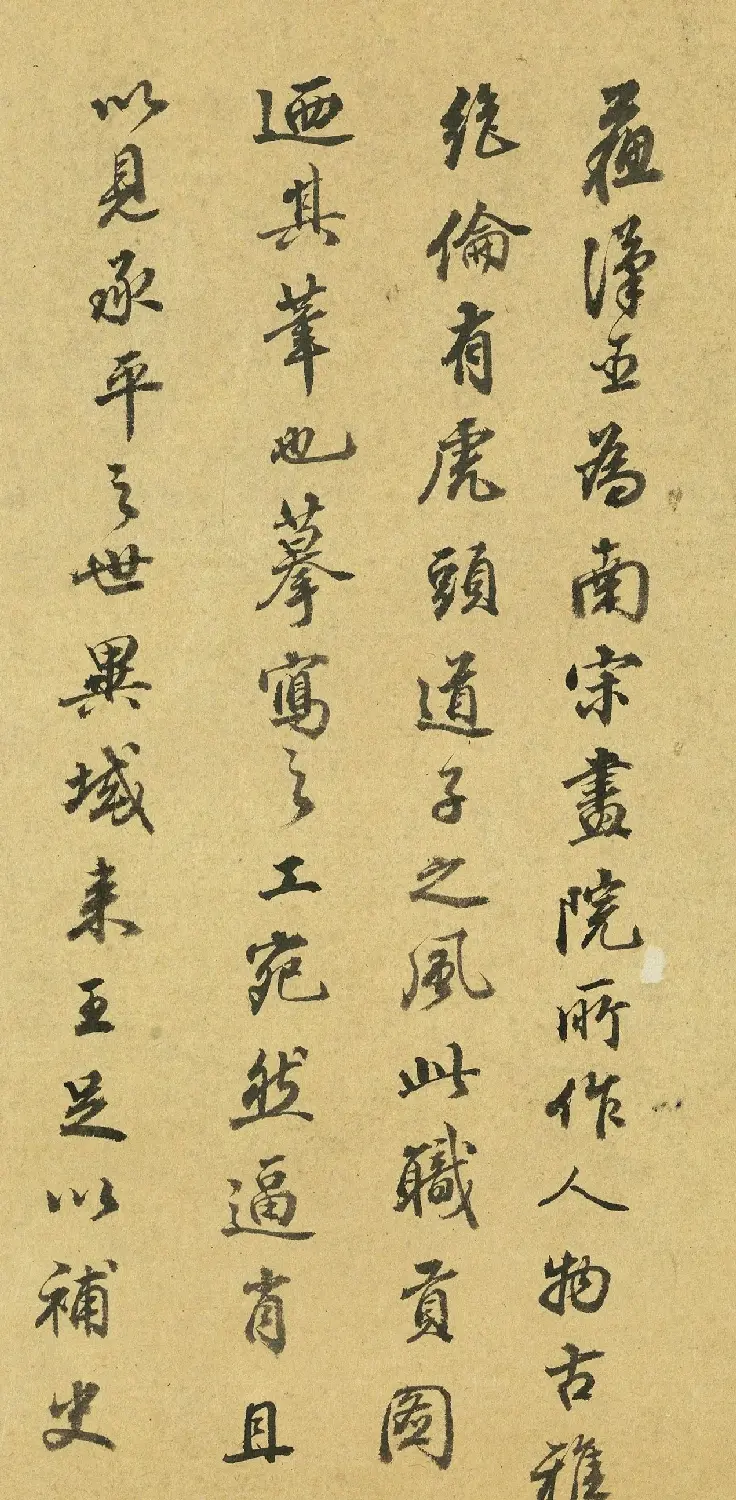 蘇漢臣為南宋畫院所作人物古雅
絕倫有虎頭道子之風此職貢圖
迺其筆也摹寫之工宛然逼肖且
以見承平之世異域来王足以補史